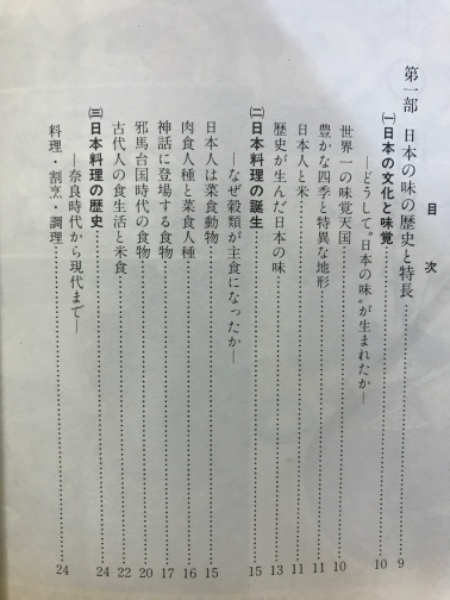 目次
第一部 日本の味の歴史と特長……9
㈠日本の文化と味覚……10
―どうして〝日本の味〟が生まれたか―
世界一の味覚天国……10
豊かな四季と特異な地形……11
日本人と米……11
歴史が生んだ日本の味……13
㈡日本料理の誕生……15
―なぜ穀類が主食になったか―
日本人は菜食動物……15
肉食人種と菜食人種……16
神話に登場する食物……17
邪馬台国時代の食物……20
古代人の食生活と米食……22
㈢日本料理の歴史……24
―奈良時代から現代まで―
料理・割烹・調理……24